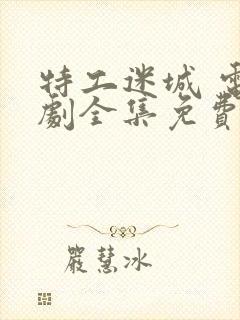 特工迷城 電
劇全集免費
嚴慧冰